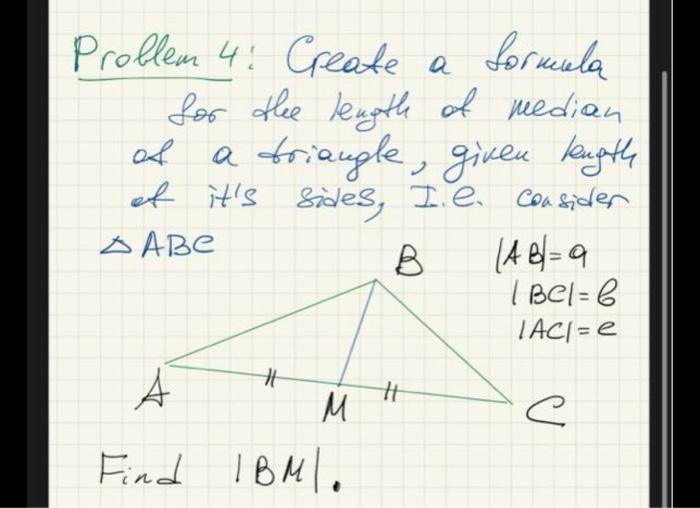 Problem 4: Create a formula
for the length of median
of a triangle, given length
of it's sides, I.e. consider
△ABC
B
|AB|=a
|BC|=b
|AC|=c
A
M
C
Find |BM|.